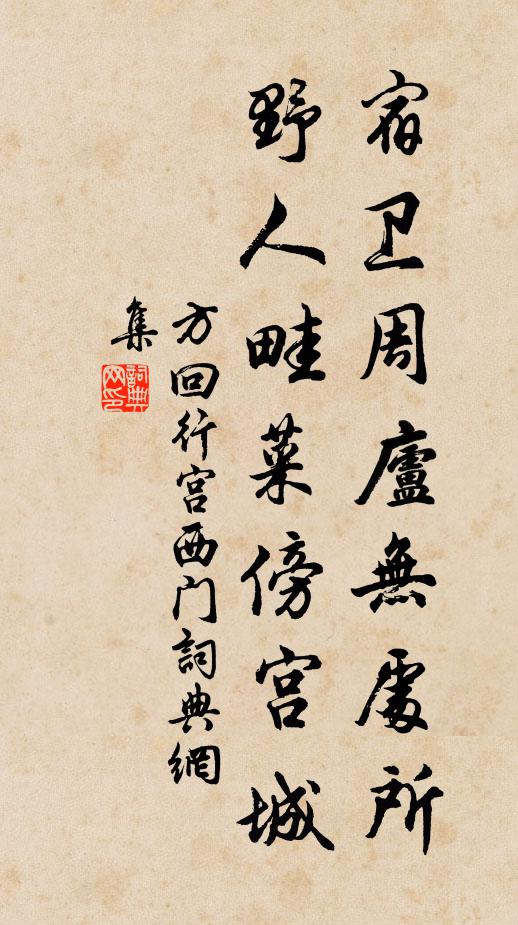 宿卫周廬無處所
野人畦菜傍宫城
方回行宫西门詞典網
集
詞典網印